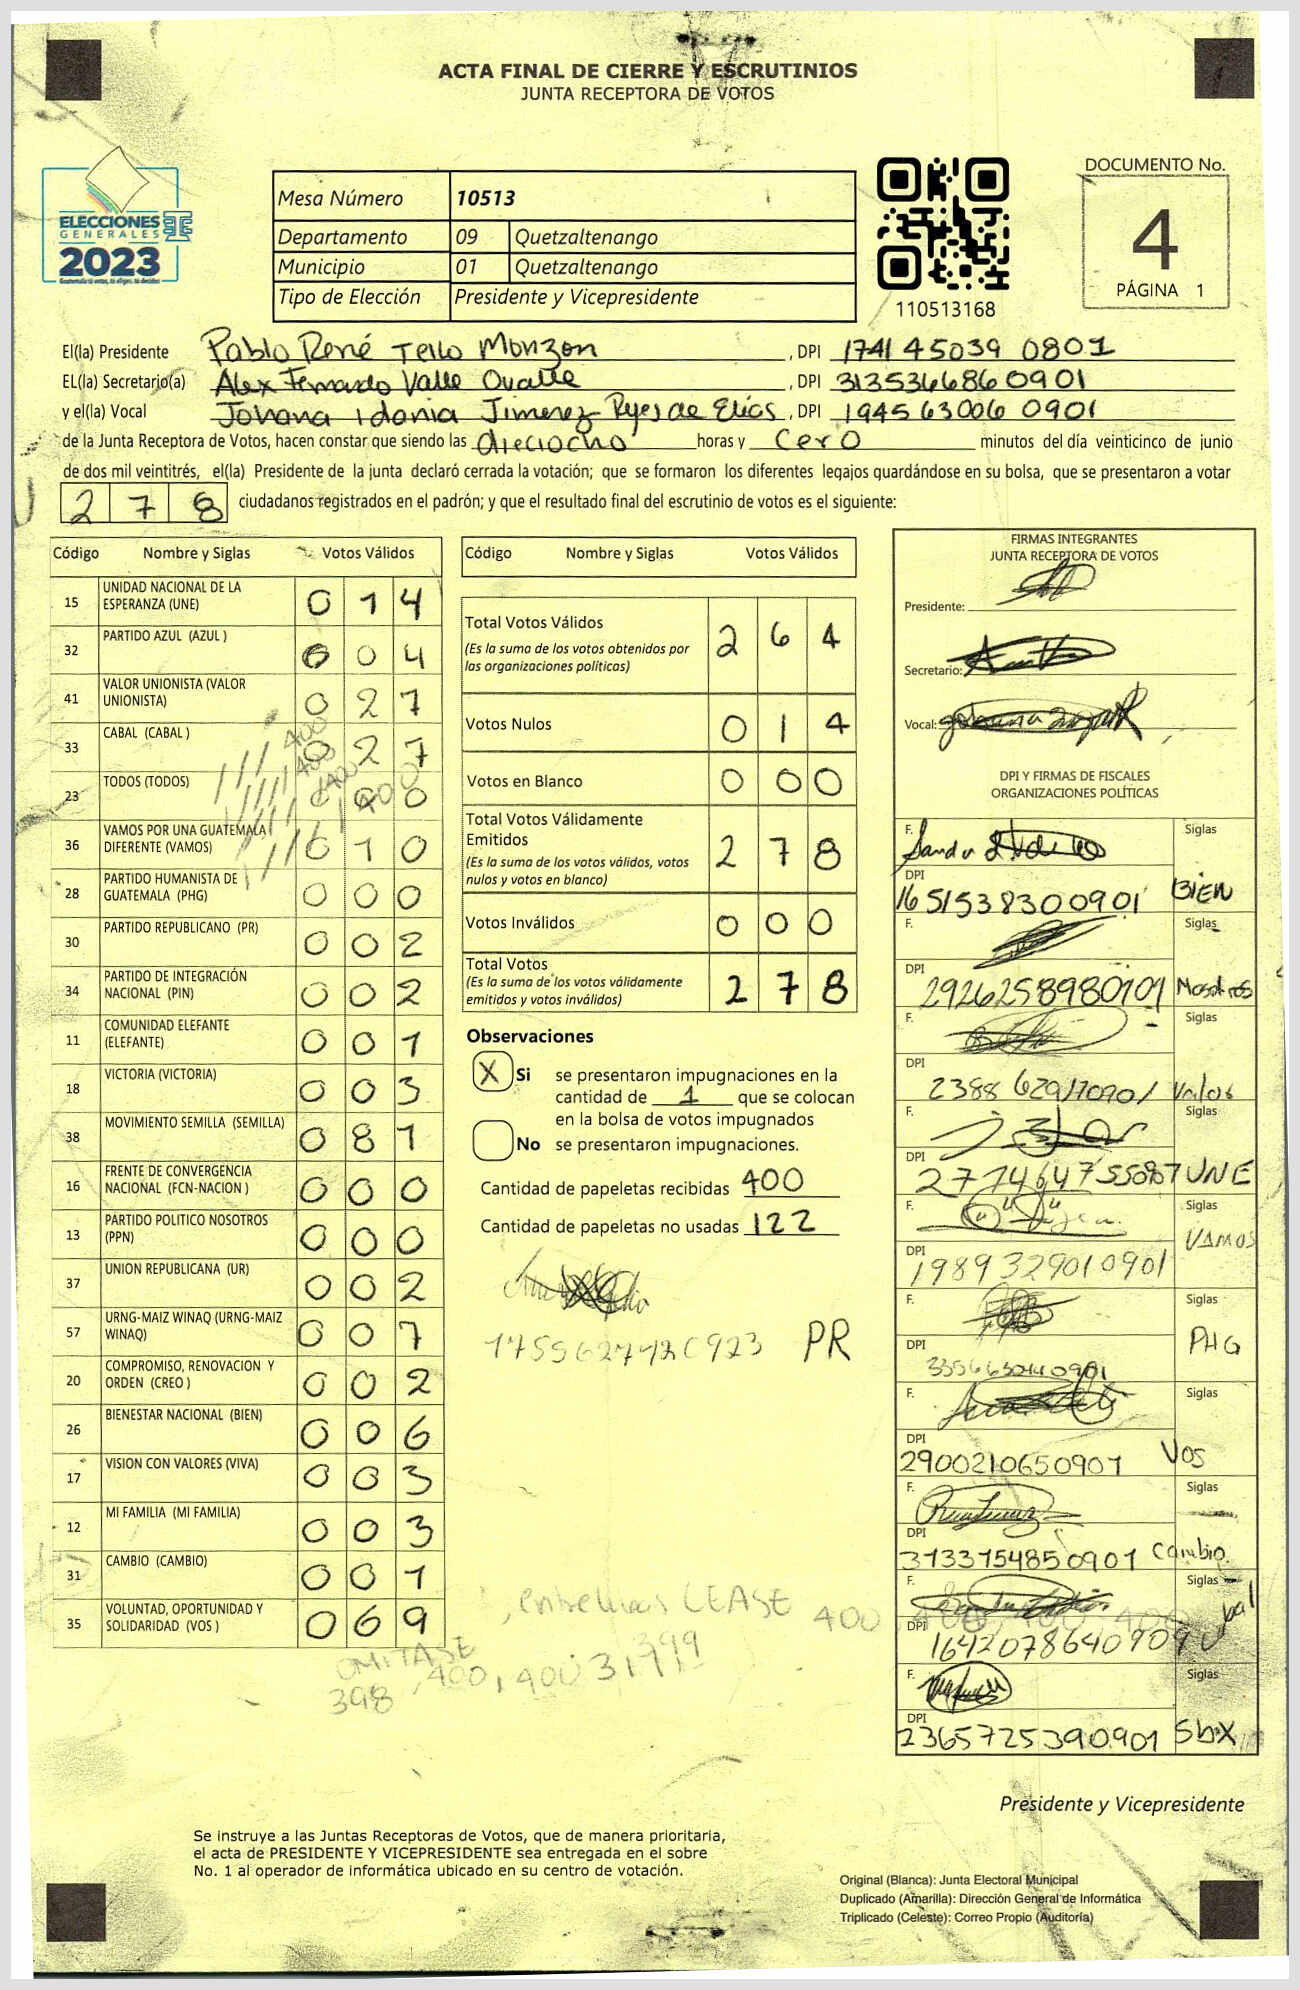 ACTA FINAL DE CIERRE Y ESCRUTINIOS
JUNTA RECEPTORA DE VOTOS
ELECCIONES
GENERALES
2023
Mesa Número 10513
Departamento 09 Quetzaltenango
Municipio 01 Quetzaltenango
Tipo de Elección Presidente y Vicepresidente
110513168
DOCUMENTO No.
4
PÁGINA 1
El(la) Presidente Pablo René Tello Monzon, DPI 1741 45039 0801
EL(la) Secretario(a) Alex Fernando Valle Ovalle, DPI 313536686 0901
y el(la) Vocal Johana idania Jimenez Reyes de Elías, DPI 1945 63006 0901
de la Junta Receptora de Votos, hacen constar que siendo las dieciocho horas y cero minutos del día veinticinco de junio
de dos mil veintitrés, el(la) Presidente de la junta declaró cerrada la votación; que se formaron los diferentes legajos guardándose en su bolsa, que se presentaron a votar
278 ciudadanos registrados en el padrón; y que el resultado final del escrutinio de votos es el siguiente:
Código Nombre y Siglas Votos Válidos
15 UNIDAD NACIONAL DE LA ESPERANZA (UNE) 014
32 PARTIDO AZUL (AZUL ) 004
41 VALOR UNIONISTA (VALOR UNIONISTA) 027
33 CABAL (CABAL ) 027
23 TODOS (TODOS) 000
36 VAMOS POR UNA GUATEMALA DIFERENTE (VAMOS) 010
28 PARTIDO HUMANISTA DE GUATEMALA (PHG) 000
30 PARTIDO REPUBLICANO (PR) 002
34 PARTIDO DE INTEGRACIÓN NACIONAL (PIN) 002
11 COMUNIDAD ELEFANTE (ELEFANTE) 001
18 VICTORIA (VICTORIA) 003
38 MOVIMIENTO SEMILLA (SEMILLA) 081
16 FRENTE DE CONVERGENCIA NACIONAL (FCN-NACION ) 000
13 PARTIDO POLITICO NOSOTROS (PPN) 000
37 UNION REPUBLICANA (UR) 002
57 URNG-MAIZ WINAQ (URNG-MAIZ WINAQ) 007
20 COMPROMISO, RENOVACION Y ORDEN (CREO ) 002
26 BIENESTAR NACIONAL (BIEN) 006
17 VISION CON VALORES (VIVA) 003
12 MI FAMILIA (MI FAMILIA) 003
31 CAMBIO (CAMBIO) 001
35 VOLUNTAD, OPORTUNIDAD Y SOLIDARIDAD (VOS ) 069
Código Nombre y Siglas Votos Válidos
Total Votos Válidos 264
(Es la suma de los votos obtenidos por
las organizaciones políticas)
Votos Nulos 014
Votos en Blanco 000
Total Votos Válidamente
Emitidos 278
(Es la suma de los votos válidos, votos
nulos y votos en blanco)
Votos Inválidos 000
Total Votos 278
(Es la suma de los votos válidamente
emitidos y votos inválidos)
Observaciones
X Si se presentaron impugnaciones en la
cantidad de 1 que se colocan
en la bolsa de votos impugnados
No se presentaron impugnaciones.
Cantidad de papeletas recibidas 400
Cantidad de papeletas no usadas 122
PR
entrelineas LEASE 400
OMITASE
398, 400, 400
FIRMAS INTEGRANTES
JUNTA RECEPTORA DE VOTOS
Presidente:
Secretario:
Vocal:
DPI Y FIRMAS DE FISCALES
ORGANIZACIONES POLÍTICAS
F. Siglas
DPI 1651538300901 BIEN
F. Siglas
DPI 2926258980101 Nosotros
F. Siglas
DPI Valor
F. Siglas
DPI UNE
F. Siglas
DPI 1989329010901 VAMOS
F. Siglas
DPI PHG
F. Siglas
DPI 2900210650901 Vos
F. Siglas
DPI 3133154850901 Cambio
F. Siglas
DPI
F. Siglas
DPI 2365725390901
Presidente y Vicepresidente
Se instruye a las Juntas Receptoras de Votos, que de manera prioritaria,
el acta de PRESIDENTE Y VICEPRESIDENTE sea entregada en el sobre
No. 1 al operador de informática ubicado en su centro de votación.
Original (Blanca): Junta Electoral Municipal
Duplicado (Amarilla): Dirección General de Informática
Triplicado (Celeste): Correo Propio (Auditoría)